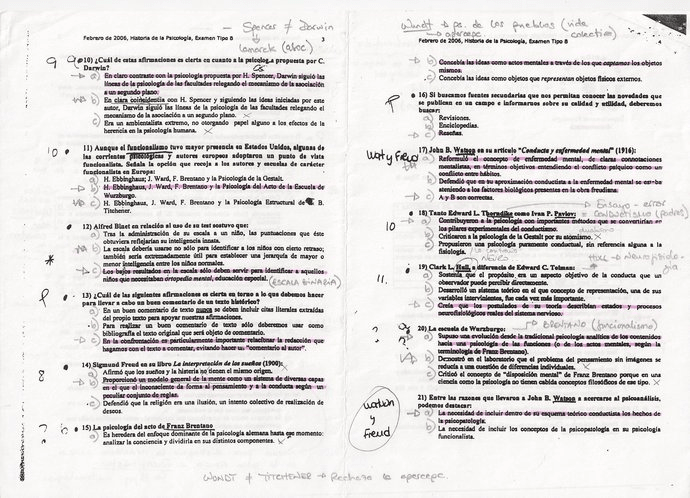 Spencer ≠ Darwin
Lamarck (asoc)
Febrero de 2006, Historia de la Psicología, Examen Tipo B 3
10) ¿Cuál de estas afirmaciones es cierta en cuanto a la psicología propuesta por C.
Darwin?
a) En claro contraste con la psicología propuesta por H. Spencer, Darwin siguió las
líneas de la psicología de las facultades relegando el mecanismo de la asociación
a un segundo plano.
b) En clara coincidencia con H. Spencer y siguiendo las ideas iniciadas por este
autor, Darwin siguió las líneas de la psicología de las facultades relegando el
mecanismo de la asociación a un segundo plano.
c) Era un ambientalista extremo, no otorgando papel alguno a los efectos de la
herencia en la psicología humana.
11) Aunque el funcionalismo tuvo mayor presencia en Estados Unidos, algunas de
las corrientes psicológicas y autores europeos adoptaron un punto de vista
funcionalista. Señala la opción que recoja a los autores y escuelas de carácter
funcionalista en Europa:
a) H. Ebbinghaus, J. Ward, F. Brentano y la Psicología de la Gestalt.
b) H. Ebbinghaus, J. Ward, F. Brentano y la Psicología del Acto de la Escuela de
Wurzburgo.
c) H. Ebbinghaus, J. Ward, F. Brentano y la Psicología Estructural de B.
Titchener.
12) Alfred Binet en relación al uso de su test sostuvo que:
a) Tras la administración de su escala a un niño, las puntuaciones que éste
obtuviera reflejarían su inteligencia innata.
b) La escala debería usarse no sólo para identificar a los niños con cierto retraso;
también sería extremadamente útil para establecer una jerarquía de mayor o
menor inteligencia entre los niños normales.
c) Los bajos resultados en la escala sólo deben servir para identificar a aquellos
niños que necesitaban ortopedia mental, educación especial.
13) ¿Cuál de las siguientes afirmaciones es cierta en torno a lo que debemos hacer
para llevar a cabo un buen comentario de un texto histórico?
a) En un buen comentario de texto nunca se deben incluir citas literales extraídas
del propio texto para apoyar nuestras afirmaciones.
b) Para realizar un buen comentario de texto sólo deberemos usar como
bibliografía el texto original que será objeto de comentario.
c) En la confrontación es particularmente importante relacionar la redacción que
hagamos con el texto a comentar, evitando hacer un "comentario al autor".
14) Sigmund Freud en su libro La interpretación de los sueños (1900)
a) Afirmó que los sueños y la histeria no tienen el mismo origen.
b) Proporcionó un modelo general de la mente como un sistema de diversas capas
en el que el inconsciente da forma al pensamiento y a la conducta según un
peculiar conjunto de reglas.
c) Defendió que la religión era una ilusión, un intento colectivo de realización de
deseos.
15) La psicología del acto de Franz Brentano
a) Es heredera del enfoque dominante de la psicología alemana hasta ese momento:
analizar la conciencia y dividirla en sus distintos componentes.
WUNDT ≠ TITCHENER → Rechaza la apercepc.
Wundt → ps. de los pueblos (vida
colectiva)
→ apercepc.
Febrero de 2006, Historia de la Psicología, Examen Tipo B 4
b) Concebía las ideas como actos mentales a través de los que captamos los objetos
mismos.
c) Concebía las ideas como objetos que representan objetos físicos externos.
16) Si buscamos fuentes secundarias que nos permitan conocer las novedades que
se publican en un campo e informarnos sobre su calidad y utilidad, deberemos
buscar:
a) Revisiones.
b) Enciclopedias.
c) Reseñas.
Wat y Freud
17) John B. Watson en su artículo "Conducta y enfermedad mental" (1916):
a) Reformuló el concepto de enfermedad mental, de claras connotaciones
mentalistas, en términos objetivos entendiendo el conflicto psíquico como un
conflicto entre hábitos.
b) Defendió que en su aproximación conductista a la enfermedad mental se estaba
ateniendo a los factores biológicos presentes en la obra freudiana.
c) A y B son correctas.
Ensayo - error
18) Tanto Edward L. Thorndike como Ivan P. Pavlov:
CONDUCTISMO (padres)
a) Contribuyeron a la psicología con importantes métodos que se convertirían en
los pilares experimentales del conductismo.
b) Criticaron a la psicología de la Gestalt por su atomismo.
c) Propusieron una psicología puramente conductual, sin referencia alguna a la
fisiología.
19) Clark L. Hull, a diferencia de Edward C. Tolman:
a) Sostenía que el propósito era un aspecto objetivo de la conducta que un
observador puede percibir directamente.
b) Desarrolló un sistema teórico en el que el concepto de representación, una de sus
variables intervinientes, fue cada vez más importante.
c) Creía que los postulados de su teoría describían estados y procesos
neurofisiológicos reales del sistema nervioso.
BRENTANO (funcionalismo)
20) La escuela de Wurzburgo:
a) Supuso una evolución desde la tradicional psicología analítica de los contenidos
hacia una psicología de las funciones o de los actos mentales, según la
terminología de Franz Brentano.
b) Demostró en el laboratorio que el problema del pensamiento sin imágenes se
reducía a una cuestión de diferencias individuales.
c) Criticó el concepto de "disposición mental" de Franz Brentano porque en una
ciencia como la psicología no tienen cabida conceptos filosóficos de ese tipo.
watson
y
Freud
21) Entre las razones que llevaron a John B. Watson a acercarse al psicoanálisis,
podemos destacar:
a) La necesidad de incluir dentro de su esquema teórico conductista los hechos de
la psicopatología.
b) La necesidad de incluir los conceptos de la psicopatología en su psicología
funcionalista.